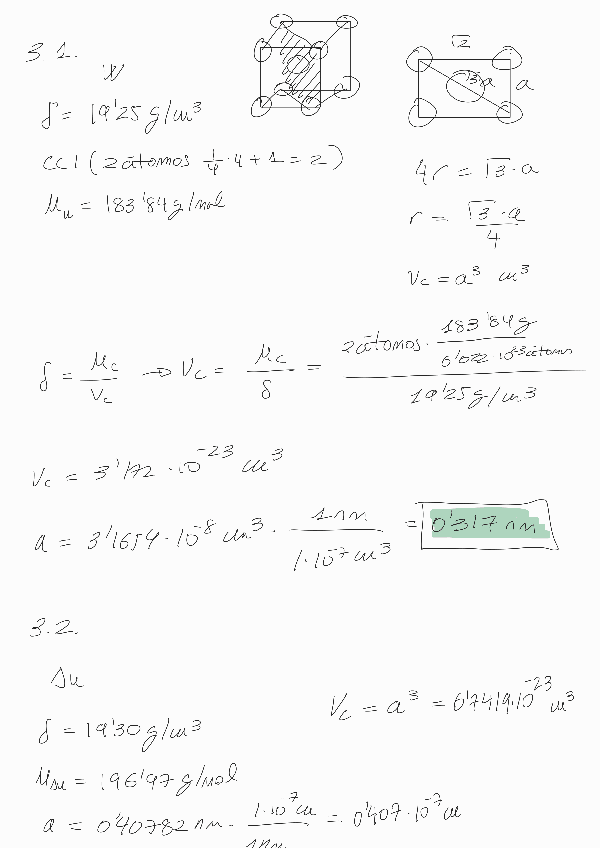 3 1.
W
√2
√3·a
a
δ = 19'25 g/cm³
CCI (2 átomos 1/4 · 4 + 1 = 2)
4r = √3 · a
Mw = 183'84 g/mol
r = √3 · a / 4
Vc = a³ cm³
δ = Mc / Vc → Vc = Mc / δ = 2 átomos · 183'84 g / 6'022 · 10²³ átomos / 19'25 g/cm³
Vc = 3'172 · 10⁻²³ cm³
a = 3'1654 · 10⁻⁸ cm³ · 1 nm / 1·10⁻⁷ cm³ = 0'317 nm
3.2.
Au
Vc = a³ = 6'7419·10⁻²³ cm³
δ = 19'30 g/cm³
MAu = 196'97 g/mol
a = 0'40782 nm · 1·10⁷ cm / 1nm = 0'407 · 10⁻⁷ cm